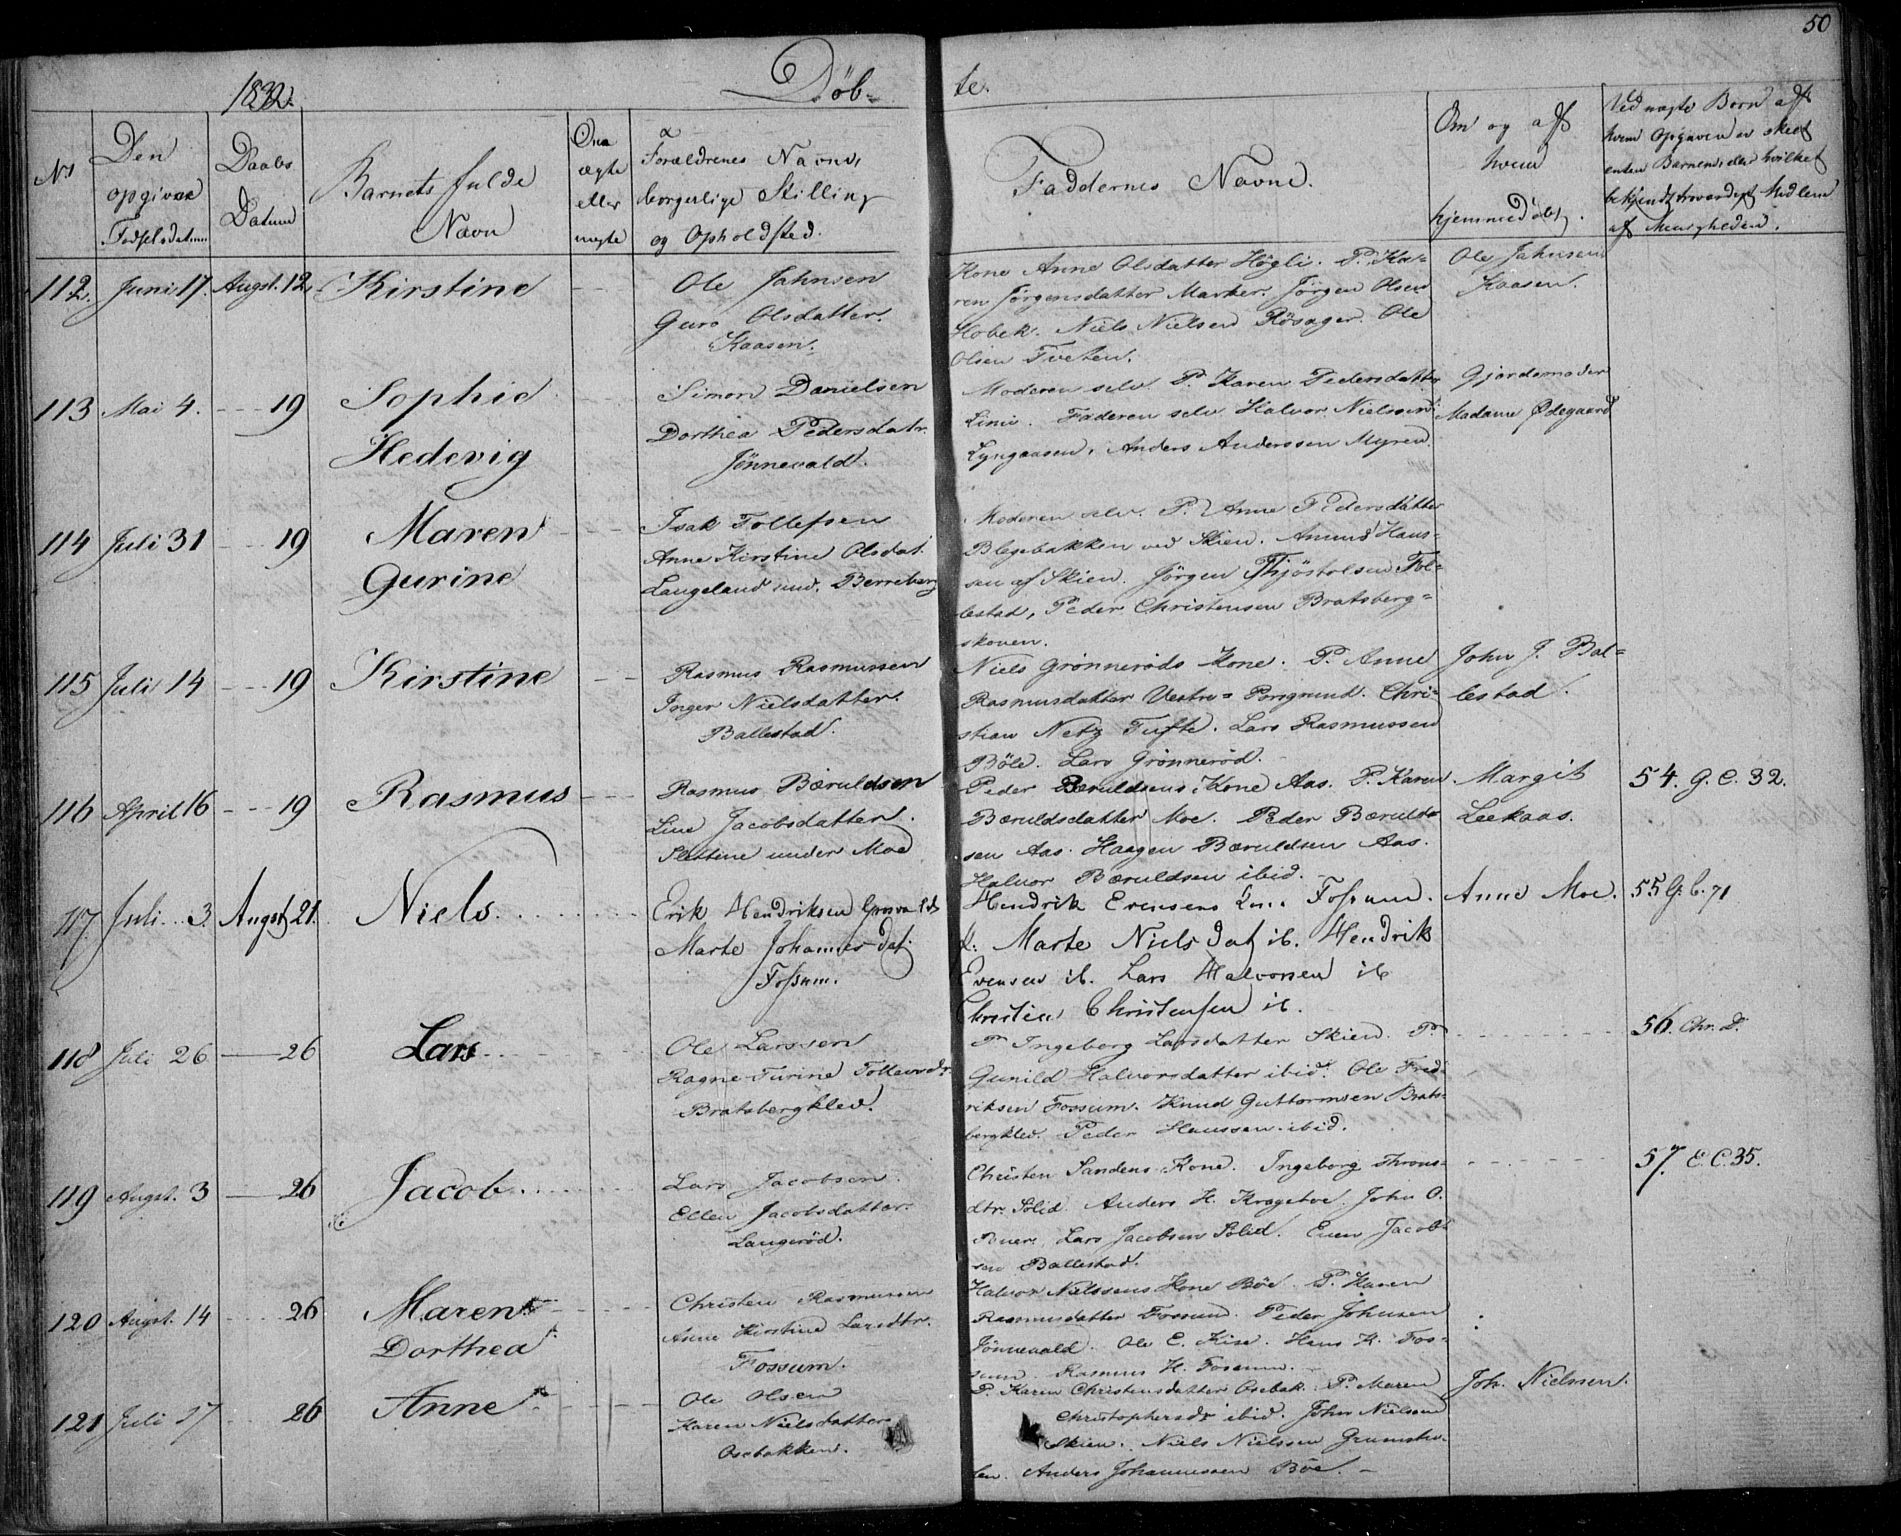 50
1832.
Döb-
te.
No
Den opgivne Fødselsdatum
Daabs Datum
Barnets fulde Navn
Om ægte eller uægte
Forældrenes Navne, borgerlige Stilling og Opholdsted.
Faddernes Navne.
Om og af hvem hjemmedøbt.
Ved uægte Børn af hvem Opgaven er skeet enten Barnemoder eller hvilket bekjendt troværdigt Medlem af Menigheden.
112. Juni 17. Augst. 12. Kirstine
Ole Jahnsen
Guro Olsdatter.
Kaasen.
Kone Anne Olsdatter Högli. P. Ka-
ren Jörgensdatter Marker. Jörgen Olsen
Hobek. Niels Nielsen Rösager. Ole
Olsen Tveten.
Ole Jahnsen
Kaasen.
113 Mai 4. 19 Sophie
Hedevig
Simon Danielsen
Dorthea Pedersdatr.
Jönnevald.
Moderen selv. P. Karen Pedersdatter
Limi. Faderen selv. Halvor Nielssen
Lyngaasen. Anders Anderssen Myren.
Gjordemoder
Madame Ødegaard
114 Juli 31 19 Maren
Gurine
Isak Tollefsen
Anne Kirstine Olsdat.
Langeland und. Berreberg
Moderen selv. P. Anne Pedersdatter
Blegebakken ved Skien. Amund Hans-
sen af Skien. Jörgen Thjöstolsen Fol-
lestad, Peder Christensen Bratsberg-
skoven.
115 Juli 14 19 Kirstine
Rasmus Rasmussen
Inger Nielsdatter.
Ballestad.
Niels Grönneröds Kone. P. Anne
Rasmusdatter Vestre-Porsgrund. Chri-
stian Netz Tufte. Lars Rasmussen
Böle. Lars Grönneröd.
John J. Bal-
lestad.
116 April 16 19 Rasmus
Rasmus Bæruldsen
Live Jacobsdatter.
Slettene under Moe
Peder Bæruldsens Kone Aas. P. Karen
Bæruldsdatter Moe. Peder Bæruld-
sen Aas. Haagen Bæruldsen Aas.
Halvor Bæruldsen ibid.
Margit
Leekaas.
54. G. C. 32.
117. Juli 3. Augst 21. Niels.
Erik Hendriksen
Marte Johannesdat.
Fossum.
Hendrik Evensens Fossum.
Marte Nielsdat ib. Hendrik
Evensen ib. Lars Halvorsen ib
Christen Christensen ib.
Anne Moe.
55 G. C. 71
118 Juli 26 26 Lars
Ole Larssen
Ragne Turine Tollevsdr.
Bratsbergklev.
P. Ingeborg Larsdatter Skien. P.
Gunild Halvorsdatter ibid. Ole Fred-
riksen Fossum. Knud Guttormsen Brats-
bergklev. Peder Hanssen ibid.
56. Chr. D.
119 Augst. 3 26 Jacob.
Lars Jacobsen.
Ellen Jacobsdatter.
Langeröd.
Christen Sandens Kone. Ingeborg Throns-
dtr. Sölid. Anders H. Kragetoe. John O.
Lars Jacobsen Sölid. Even Jacob-
sen Ballestad.
57. E. C. 35.
120 Augst. 14 26 Maren
Dorthea
Christen Rasmussen
Anne Kirstine Larsdtr.
Fossum.
Halvor Nielssens Kone Böe. P. Karen
Rasmusdatter Fossum. Peder Johnsen
Jönnevald. Ole E. Kise. Hans K. Fos-
sum. Rasmus H. Fossum.
121 Juli 27 26 Anne
Ole Olsen
Karen Nielsdatter
Osebakken.
P. Karen Christensdatter Osebak. P. Maren
Christophersdr ibid. John Nielsen
Skien. Niels Nielssen Grumsho-
len. Anders Johannessen Böe.
Joh. Nielssen.